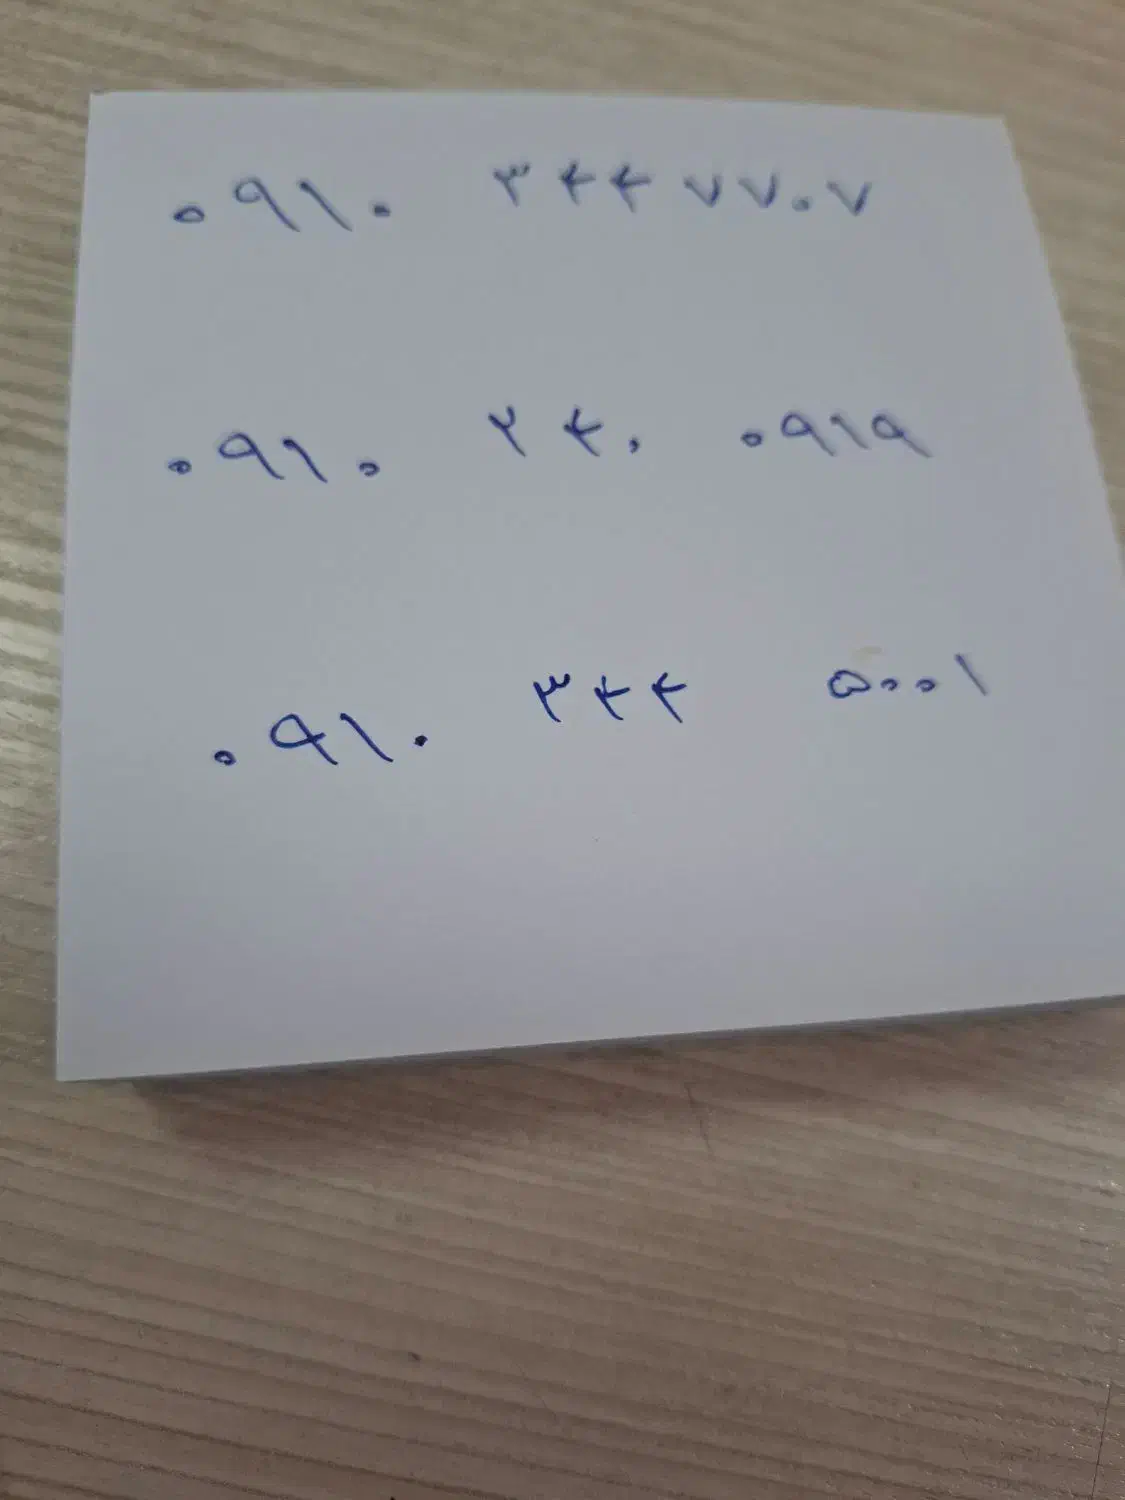 ۰۹۱۰ ۳۴۴ ۷۷۰۷
۰۹۱۰ ۲۴۰ ۰۹۱۹
۰۹۱۰ ۳۴۴ ۵۰۰۱